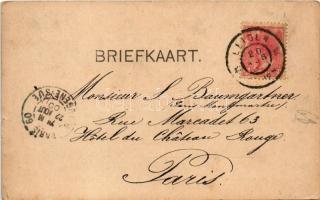 BRIEFKAART.
LEIDEN
Monsieur A. Baumgartner
Rue Marcadet 63
Hôtel du Château Rouge
Paris.